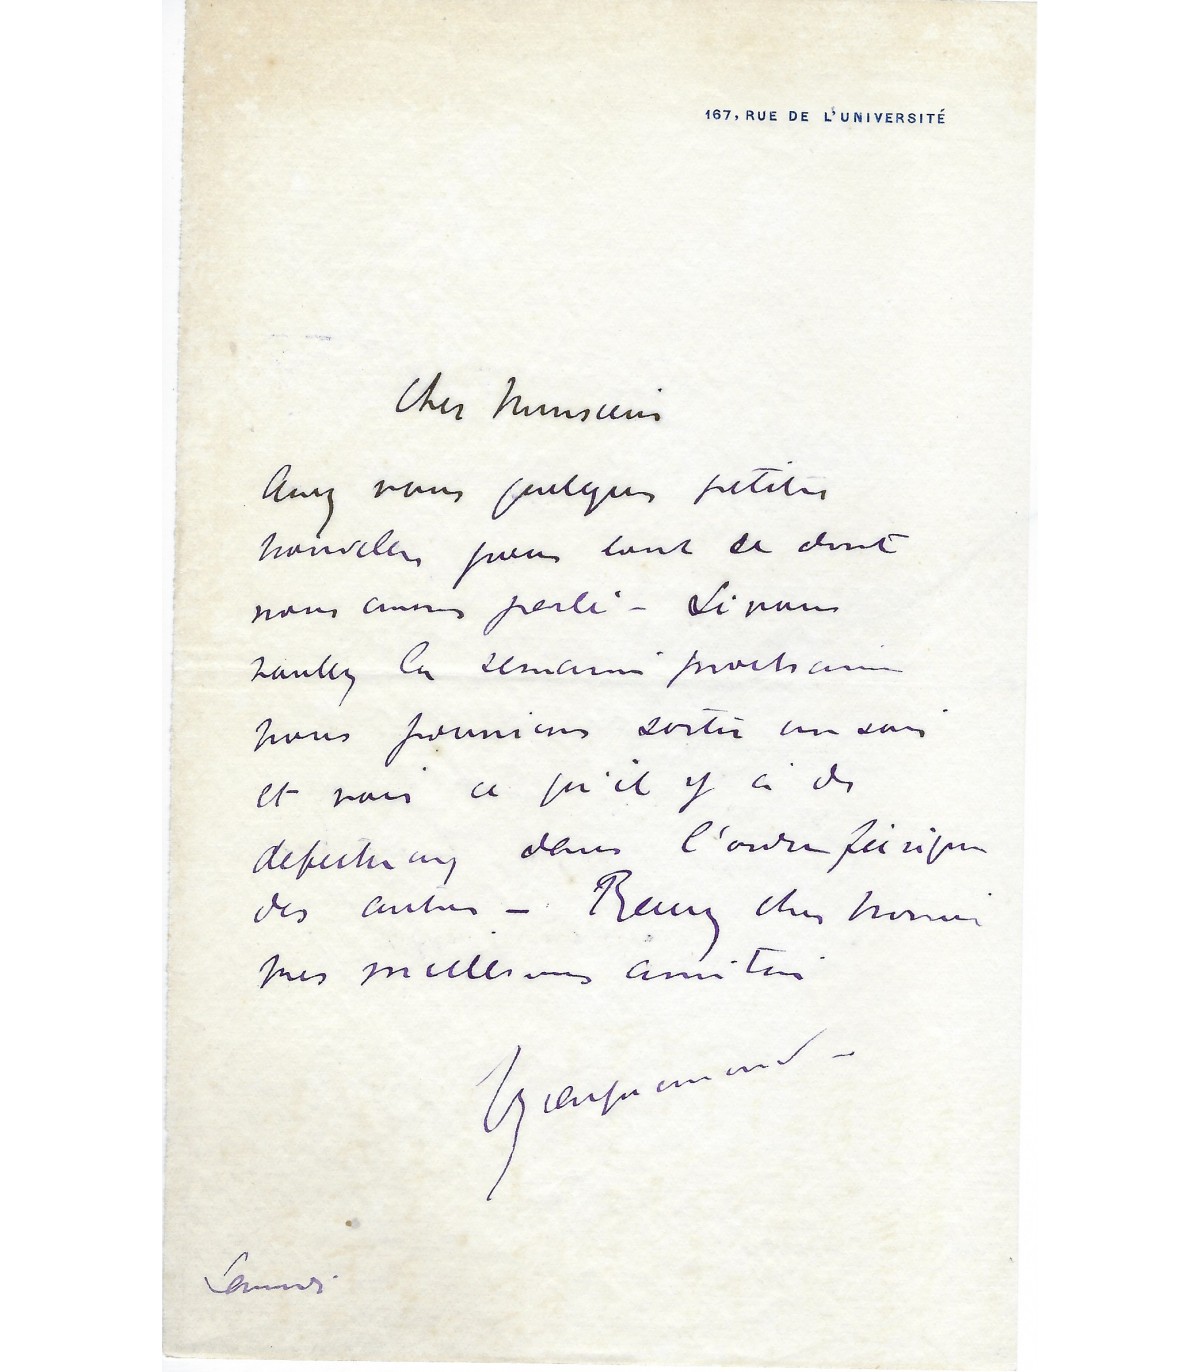 167, RUE DE L'UNIVERSITÉ
Cher Monsieur
Avez vous quelques petites
nouvelles pour tout ce dont
nous avons parlé - Si vous
voulez la semaine prochaine
nous pourrions sortir un soir
et voir ce qu'il y a de
defectueux dans l'ordre
des autres - Recevez cher Monsieur
mes meilleures amitiés
Samedi